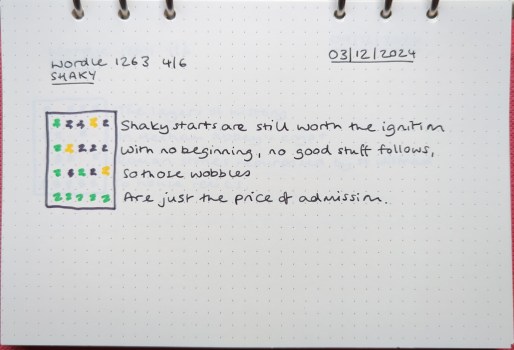 Wordle 1263 4/6
SHAKY
03/12/2024
Shaky starts are still worth the ignition
With no beginning, no good stuff follows,
So those wobbles
Are just the price of admission.